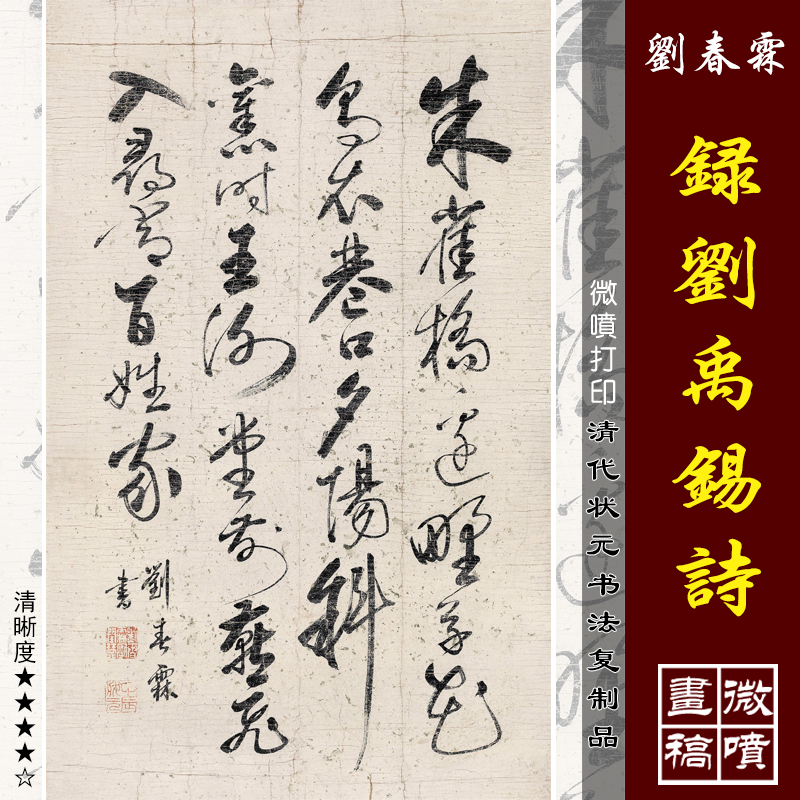 劉春霖
録劉禹錫詩
微噴打印清代状元书法复制品
朱雀橋邊野草花
烏衣巷口夕陽斜
舊時王謝堂前燕飛
入尋常百姓家
劉春霖
書
清晰度★★★★☆
微噴
畫稿